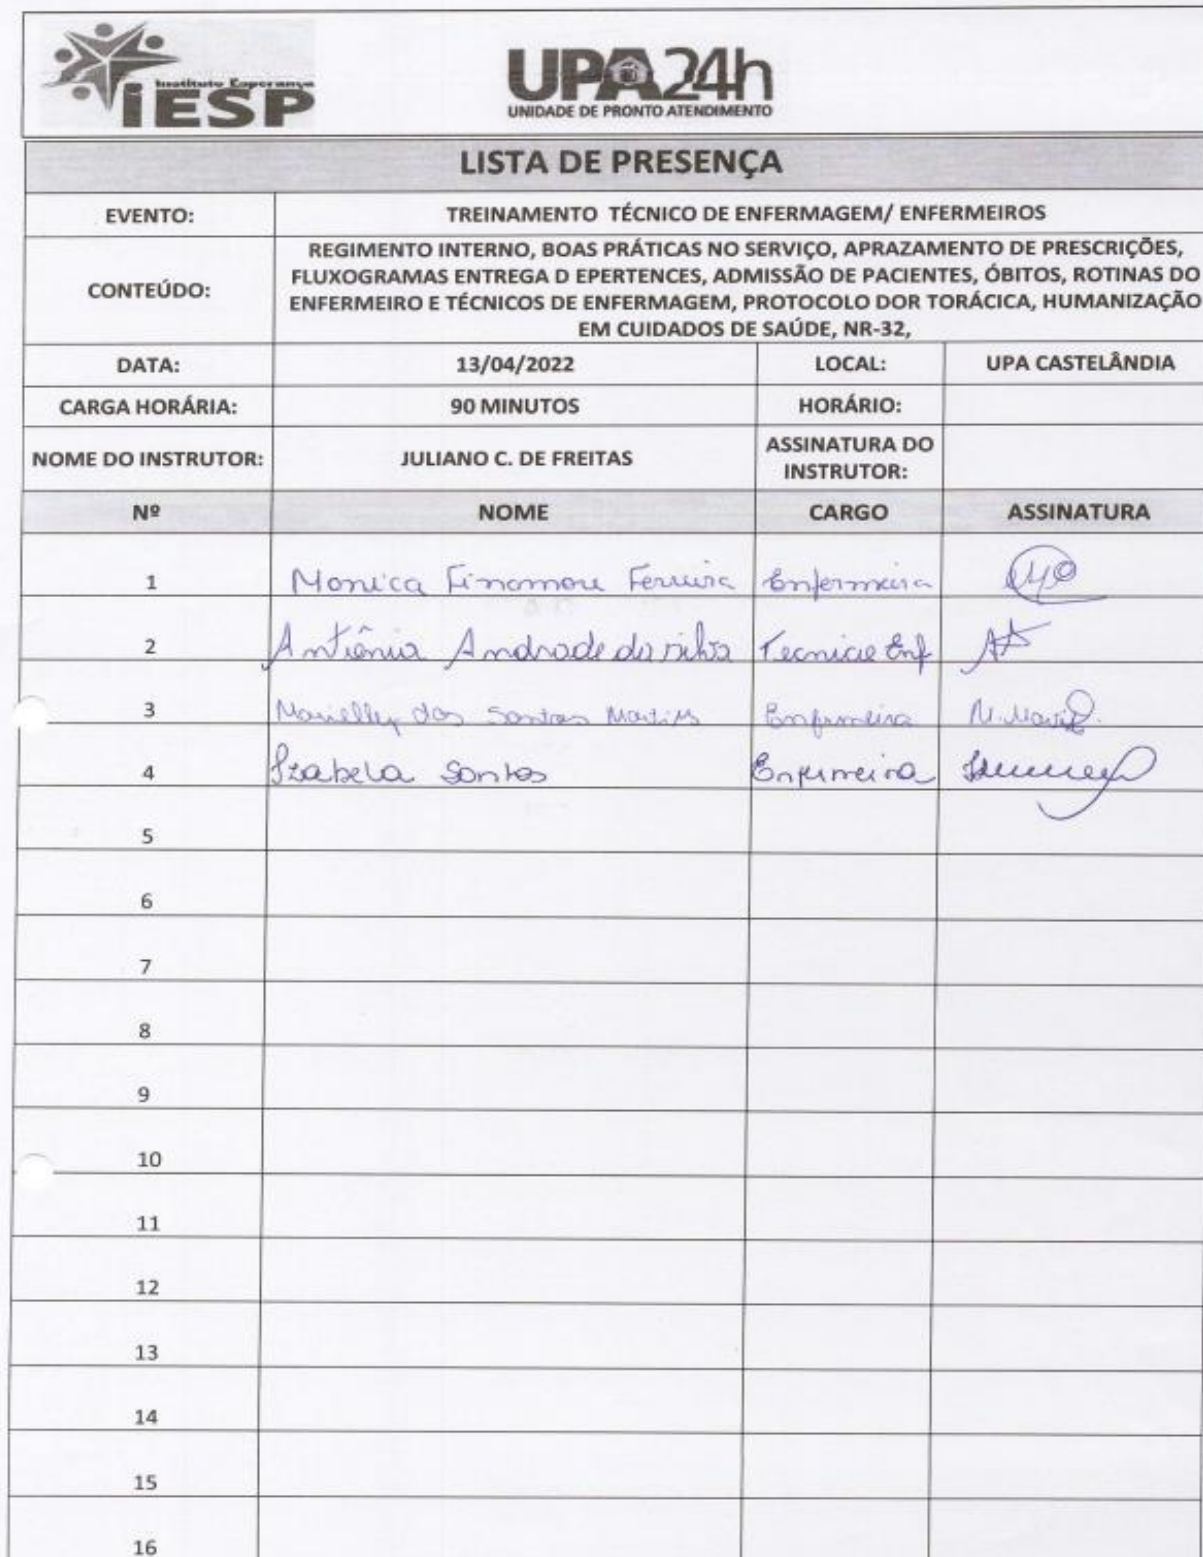 Instituto Esperança
IESP
UPA 24h
UNIDADE DE PRONTO ATENDIMENTO
LISTA DE PRESENÇA
EVENTO: TREINAMENTO TÉCNICO DE ENFERMAGEM/ ENFERMEIROS
CONTEÚDO: REGIMENTO INTERNO, BOAS PRÁTICAS NO SERVIÇO, APRAZAMENTO DE PRESCRIÇÕES,
FLUXOGRAMAS ENTREGA D EPERTENCES, ADMISSÃO DE PACIENTES, ÓBITOS, ROTINAS DO
ENFERMEIRO E TÉCNICOS DE ENFERMAGEM, PROTOCOLO DOR TORÁCICA, HUMANIZAÇÃO
EM CUIDADOS DE SAÚDE, NR-32,
DATA: 13/04/2022 LOCAL: UPA CASTELÂNDIA
CARGA HORÁRIA: 90 MINUTOS HORÁRIO:
NOME DO INSTRUTOR: JULIANO C. DE FREITAS ASSINATURA DO
INSTRUTOR:
Nº NOME CARGO ASSINATURA
1 Monica Finamore Ferreira Enfermeira
2 Antônia Andrade da silva Tecnica Enf
3 Marielly dos Santos Martins Enfermeira
4 Izabela Santos Enfermeira
5
6
7
8
9
10
11
12
13
14
15
16